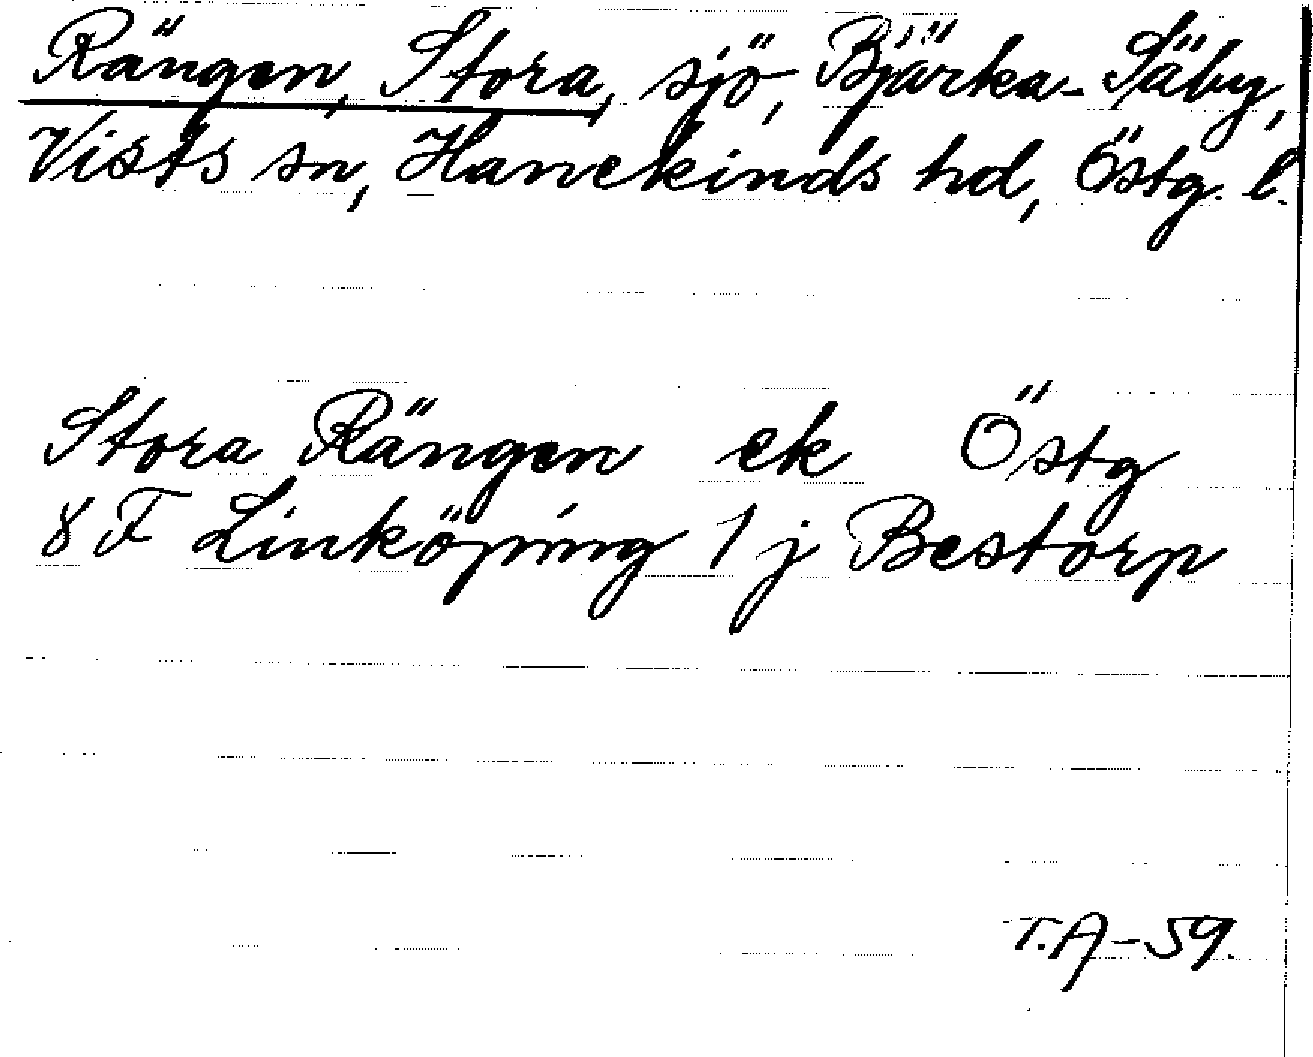 Rängen, Stora, sjö, Bjärka-Säby,
Vists sn, Hanekinds hd, Östg. l.
Stora Rängen ek Östg
8 F Linköping 1 j Bestorp
T.A-59.